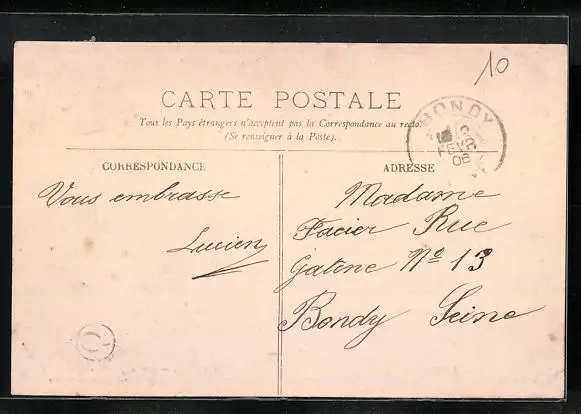 10
CARTE POSTALE
Tous les Pays étrangers n'acceptent pas la Correspondance au recto.
(Se renseigner à la Poste).
BONDY
FEVR
06
CORRESPONDANCE
ADRESSE
Vous embrasse
Lucien
Madame
Facier Rue
Gatine Nº 13
Bondy Seine